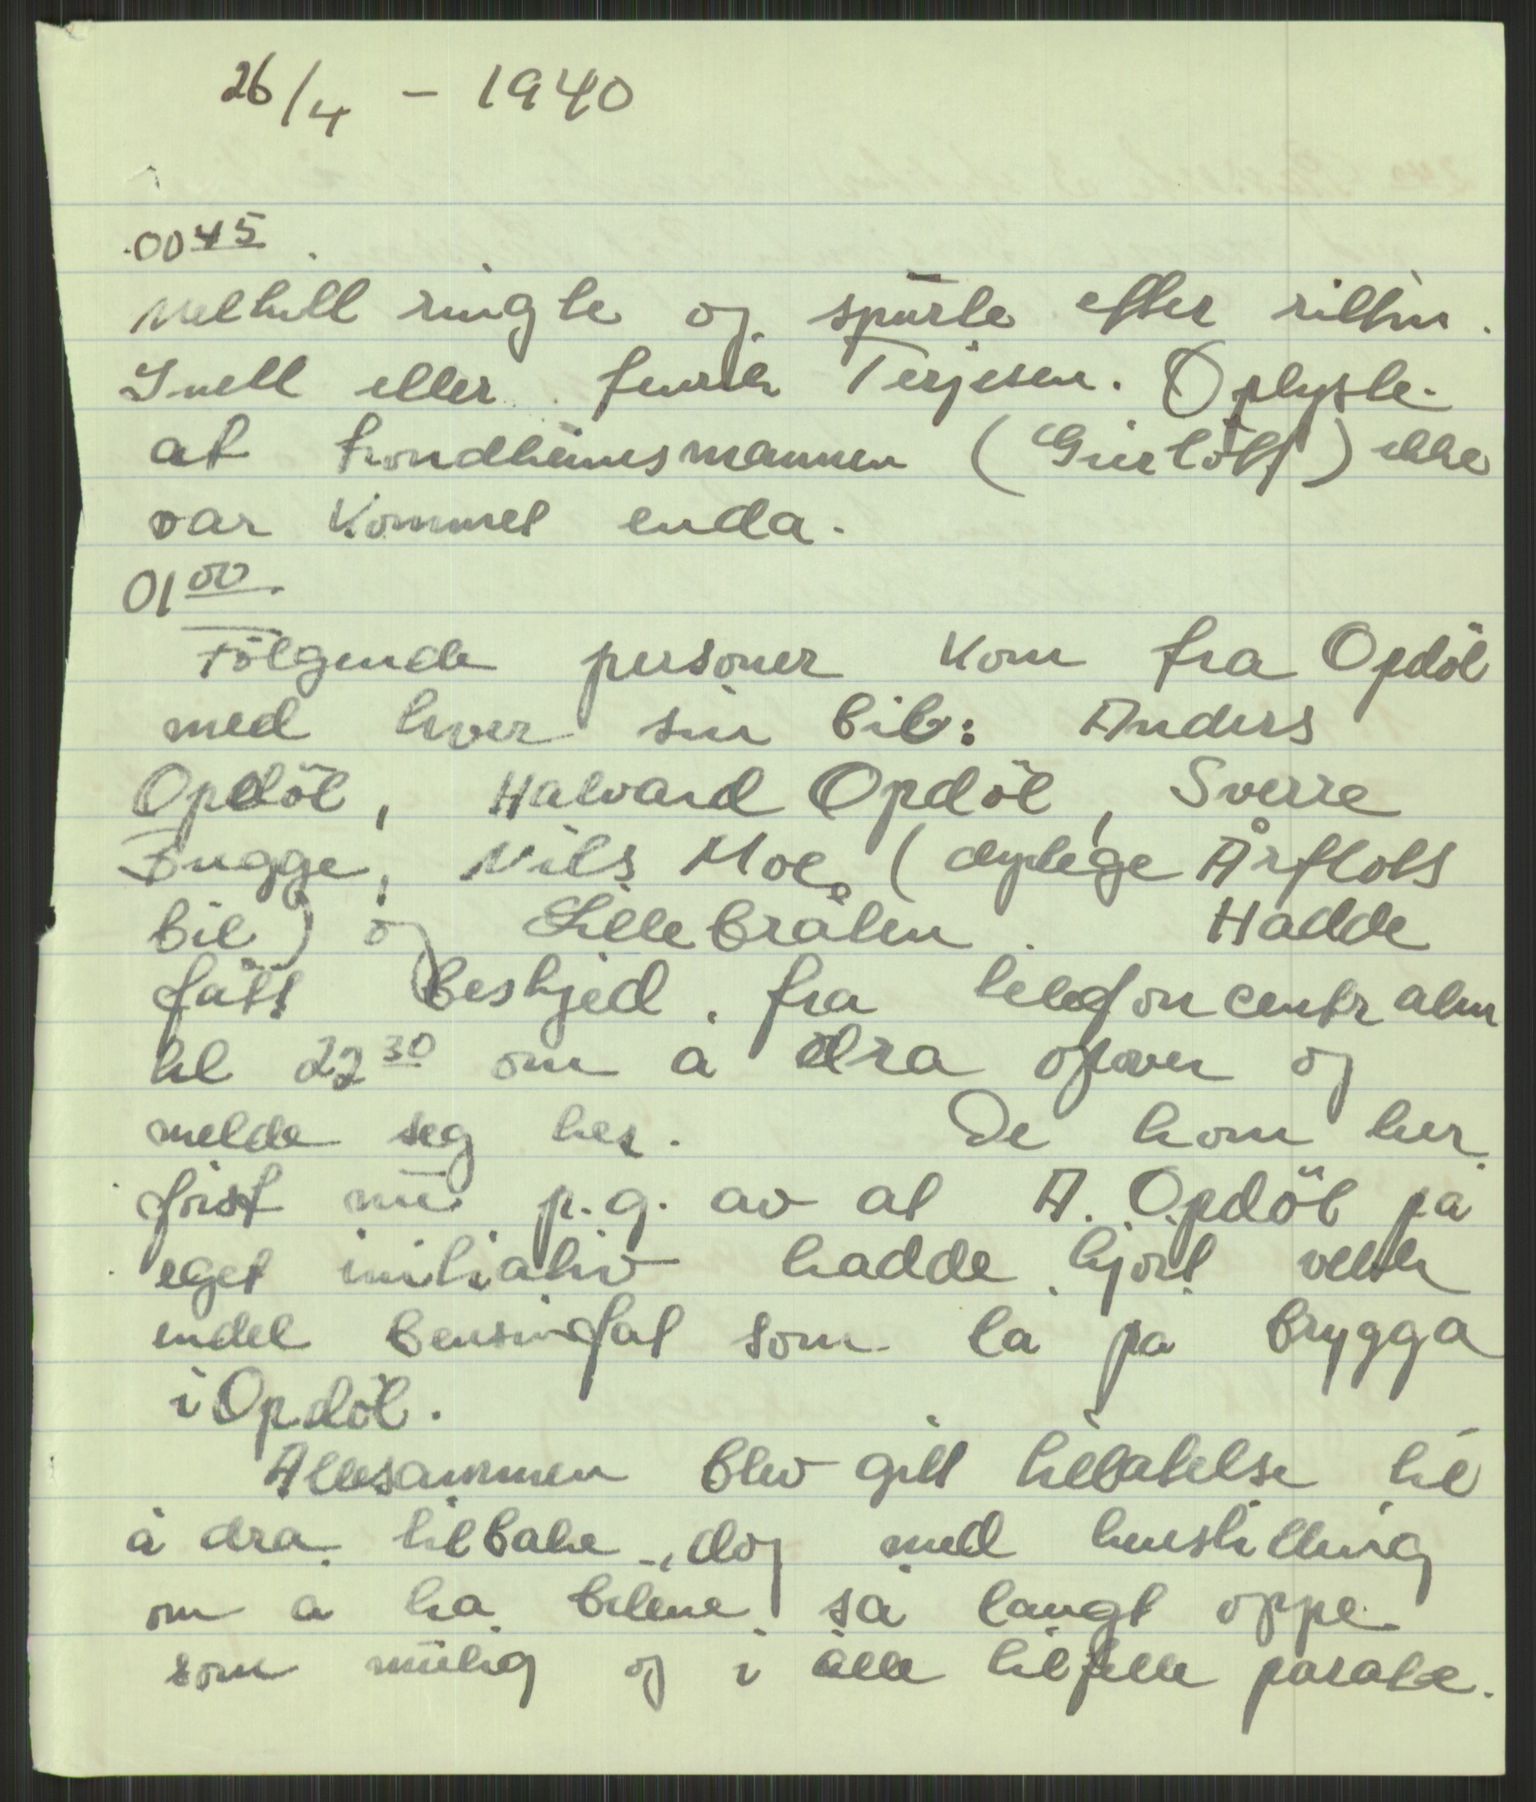 26/4 - 1940
0045
ringte og spurte efter rittm.
Snell eller fenrik Terjesen. Oplyste
at trondheimsmannen (Giertöff) ikke
var kommet enda.
01 00
Følgende personer kom fra Opdöl
med hver sin bil: Anders
Opdöl, Halvard Opdöl, Sverre
Bugge, Nils Moe (dyrlege Årflots
bil) og Lillebråten. Hadde
fått beskjed fra telefoncentralen
kl 22 30 om å dra opover og
melde seg her. De kom her
först nu p.g. av at A. Opdöl på
eget initiativ hadde kjört vekk
endel bensinfat som lå på brygga
i Opdöl.
Allesammen blev gitt tillatelse til
å dra tilbake, dog med henstilling
om å ha bilene så langt oppe
som mulig og i alle tilfelle parate.